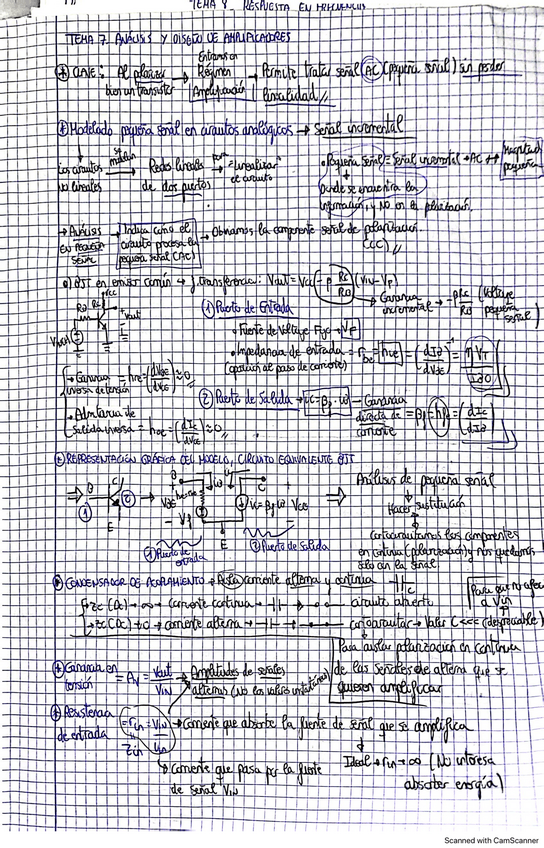 TEMA 8. RESPUESTA EN FRECUENCIA
TEMA 7. ANÁLISIS Y DISEÑO DE AMPLIFICADORES
* CLAVE: Al polarizar bien un transistor → Entramos en Régimen Amplificación → Permite tratar señal AC (pequeña señal) sin perder linealidad //
* Modelado pequeña señal en circuitos analógicos → Señal incremental
Los circuitos No lineales → se modelan → Redes lineales de dos puertos → para "linealizar" el circuito
• Pequeña señal = Señal incremental → AC → Magnitud pequeña
Donde se encuentra la información, y NO en la polarización.
→ Análisis en pequeña señal → Indica cómo el circuito procesa la pequeña señal (AC) → Obviamos la componente señal de polarización. (CC) //
•) BJT en emisor común → f. transferencia: Vout = Vcc (-β Rc/RB) (Vin - Vγ)
Ganancia incremental → -β Rc/RB (Voltaje pequeña señal)
① Puerto de Entrada
• Fuente de Voltaje Fijo → Vγ
• Impedancia de entrada = rbe = hie = (dIB/dVBE)⁻¹ = ηVT/IB0
(oposición al paso de corriente)
→ Ganancia inversa de tensión = hre = (dVBE/dVCE) ≈ 0 //
② Puerto de Salida → ic = βF · ib → Ganancia directa de corriente = βF = hFe = (dIc/dIB)
→ Admitancia de salida inversa = hoe = (dIc/dVCE) ≈ 0 //
* REPRESENTACIÓN GRÁFICA DEL MODELO, CIRCUITO EQUIVALENTE BJT
① Puerto de entrada
② Puerto de Salida
Análisis de pequeña señal
Hacer sustitución
Cortocircuitamos las componentes en continua (polarización) y nos quedamos solo con la señal
* CONDENSADOR DE ACOPLAMIENTO → Aísla corriente alterna y continua
Zc (DC) → ∞ → corriente continua → circuito abierto
Zc (AC) → 0 → corriente alterna → cortocircuitar → Valor C <<< (despreciable)
Para que no afecte a Vin
Para aislar polarización en continua de las señales de alterna que se quieren amplificar
* Ganancia en tensión = Av = Vout/Vin → Amplitudes de señales alternas (No los valores instantáneos)
* Resistencia de entrada = rin = Vin/iin → Corriente que absorbe la fuente de señal que se amplifica
Zin
→ Corriente que pasa por la fuente de señal Vin
Ideal → rin → ∞ (No interesa absorber energía)
Scanned with CamScanner